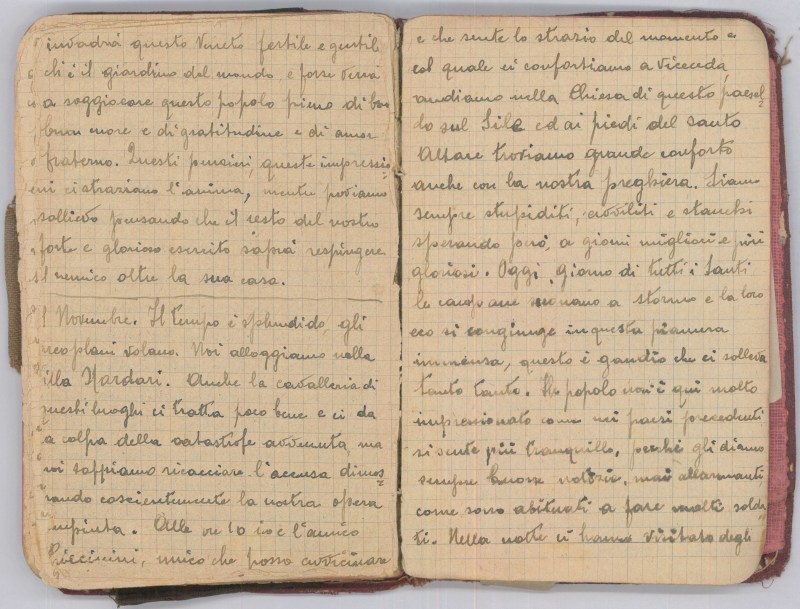 invadrà questo Veneto fertile e gentile
ch'è il giardino del mondo, e forse verrà
a soggiocare questo popolo pieno di buo
buon more e di gratitudine e di amor
fraterno. Questi pensieri, queste impressio=
ni ci straziano l'anima, mentre proviamo
sollievo pensando che il resto del nostro
forte e glorioso esercito saprà respingere
il nemico oltre la sua casa.
1 Novembre. Il tempo è splendido, gli
reoplani volano. Noi alloggiamo nella
illa Nardari. Anche la cavalleria di
questi luoghi ci tratta poco bene e ci da
a colpa della catastrofe avvenuta, ma
noi sappiamo ricacciare l'accusa dimos=
rando coscientemente la nostra opera
mpiuta. Alle ore 10 io e l'amico
Piccinini, unico che posso avvicinare
e che sente lo strazio del momento e
col quale ci confortiamo a viceceda
andiamo nella Chiesa di questo paesel=
lo sul Sile ed ai piedi del santo
Altare troviamo grande conforto
anche con la nostra preghiera. Siamo
sempre stupiditi, avviliti e stanchi
sperando però, a giorni migliori e più
gloriosi. Oggi, giorno di tutti i Santi
le campane suonano a stormo e la loro
eco si congiunge in questa pianura
immensa, questo è gaudio che ci solleva
tanto tanto. Il popolo non è qui molto
impressionato come nei paesi precedenti
si sente più tranquillo, perchè gli diamo
sempre buone notizie, mai allarmanti
come sono abituati a fare molti solda=
ti. Nella notte ci hanno visitato degli